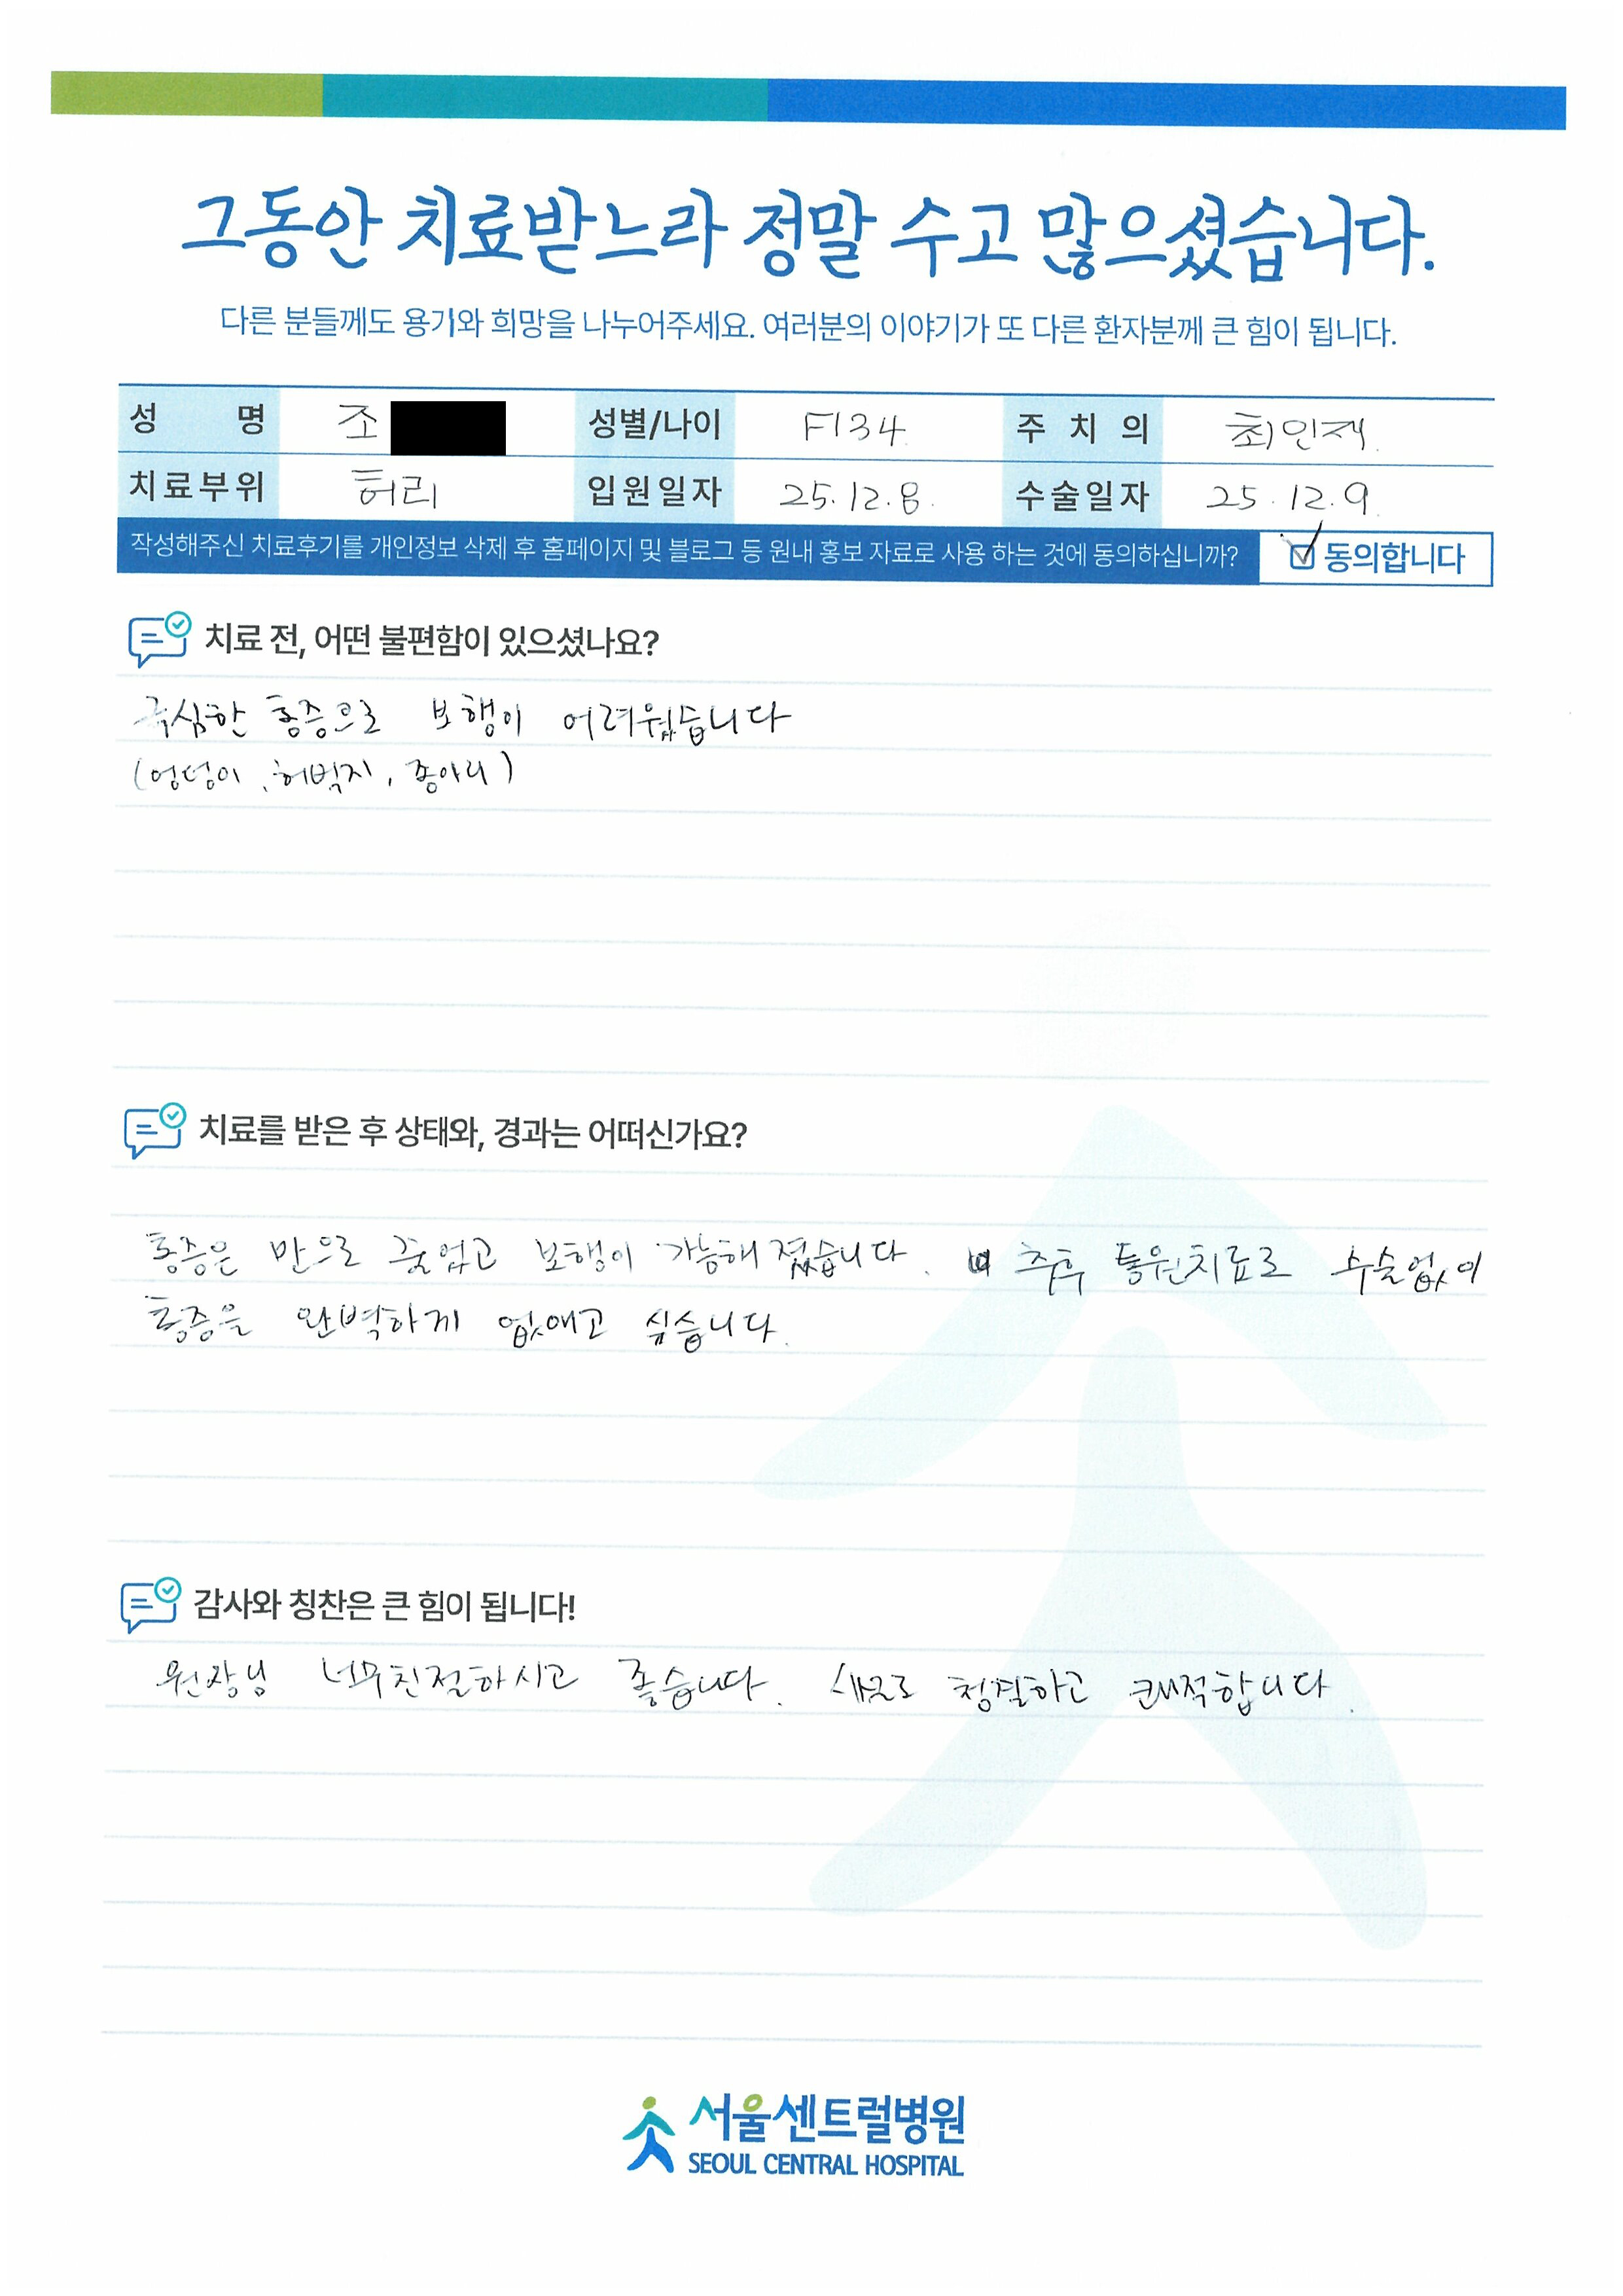 그동안 치료받느라 정말 수고 많으셨습니다.
다른 분들께도 용기와 희망을 나누어주세요. 여러분의 이야기가 또 다른 환자분께 큰 힘이 됩니다.
성 명 조 성별/나이 F134 주 치 의 최인재.
치료부위 허리 입원일자 25.12.8. 수술일자 25.12.9.
작성해주신 치료후기를 개인정보 삭제 후 홈페이지 및 블로그 등 원내 홍보 자료로 사용 하는 것에 동의하십니까? 동의합니다
치료 전, 어떤 불편함이 있으셨나요?
극심한 통증으로 보행이 어려웠습니다
(엉덩이, 허벅지, 종아리)
치료를 받은 후 상태와, 경과는 어떠신가요?
통증은 반으로 줄었고 보행이 가능해 졌습니다. 추후 통원치료로 수술없이
통증을 완벽하게 없애고 싶습니다.
감사와 칭찬은 큰 힘이 됩니다!
원장님 너무친절하시고 좋습니다. 새로 청결하고 쾌적합니다.
서울센트럴병원
SEOUL CENTRAL HOSPITAL